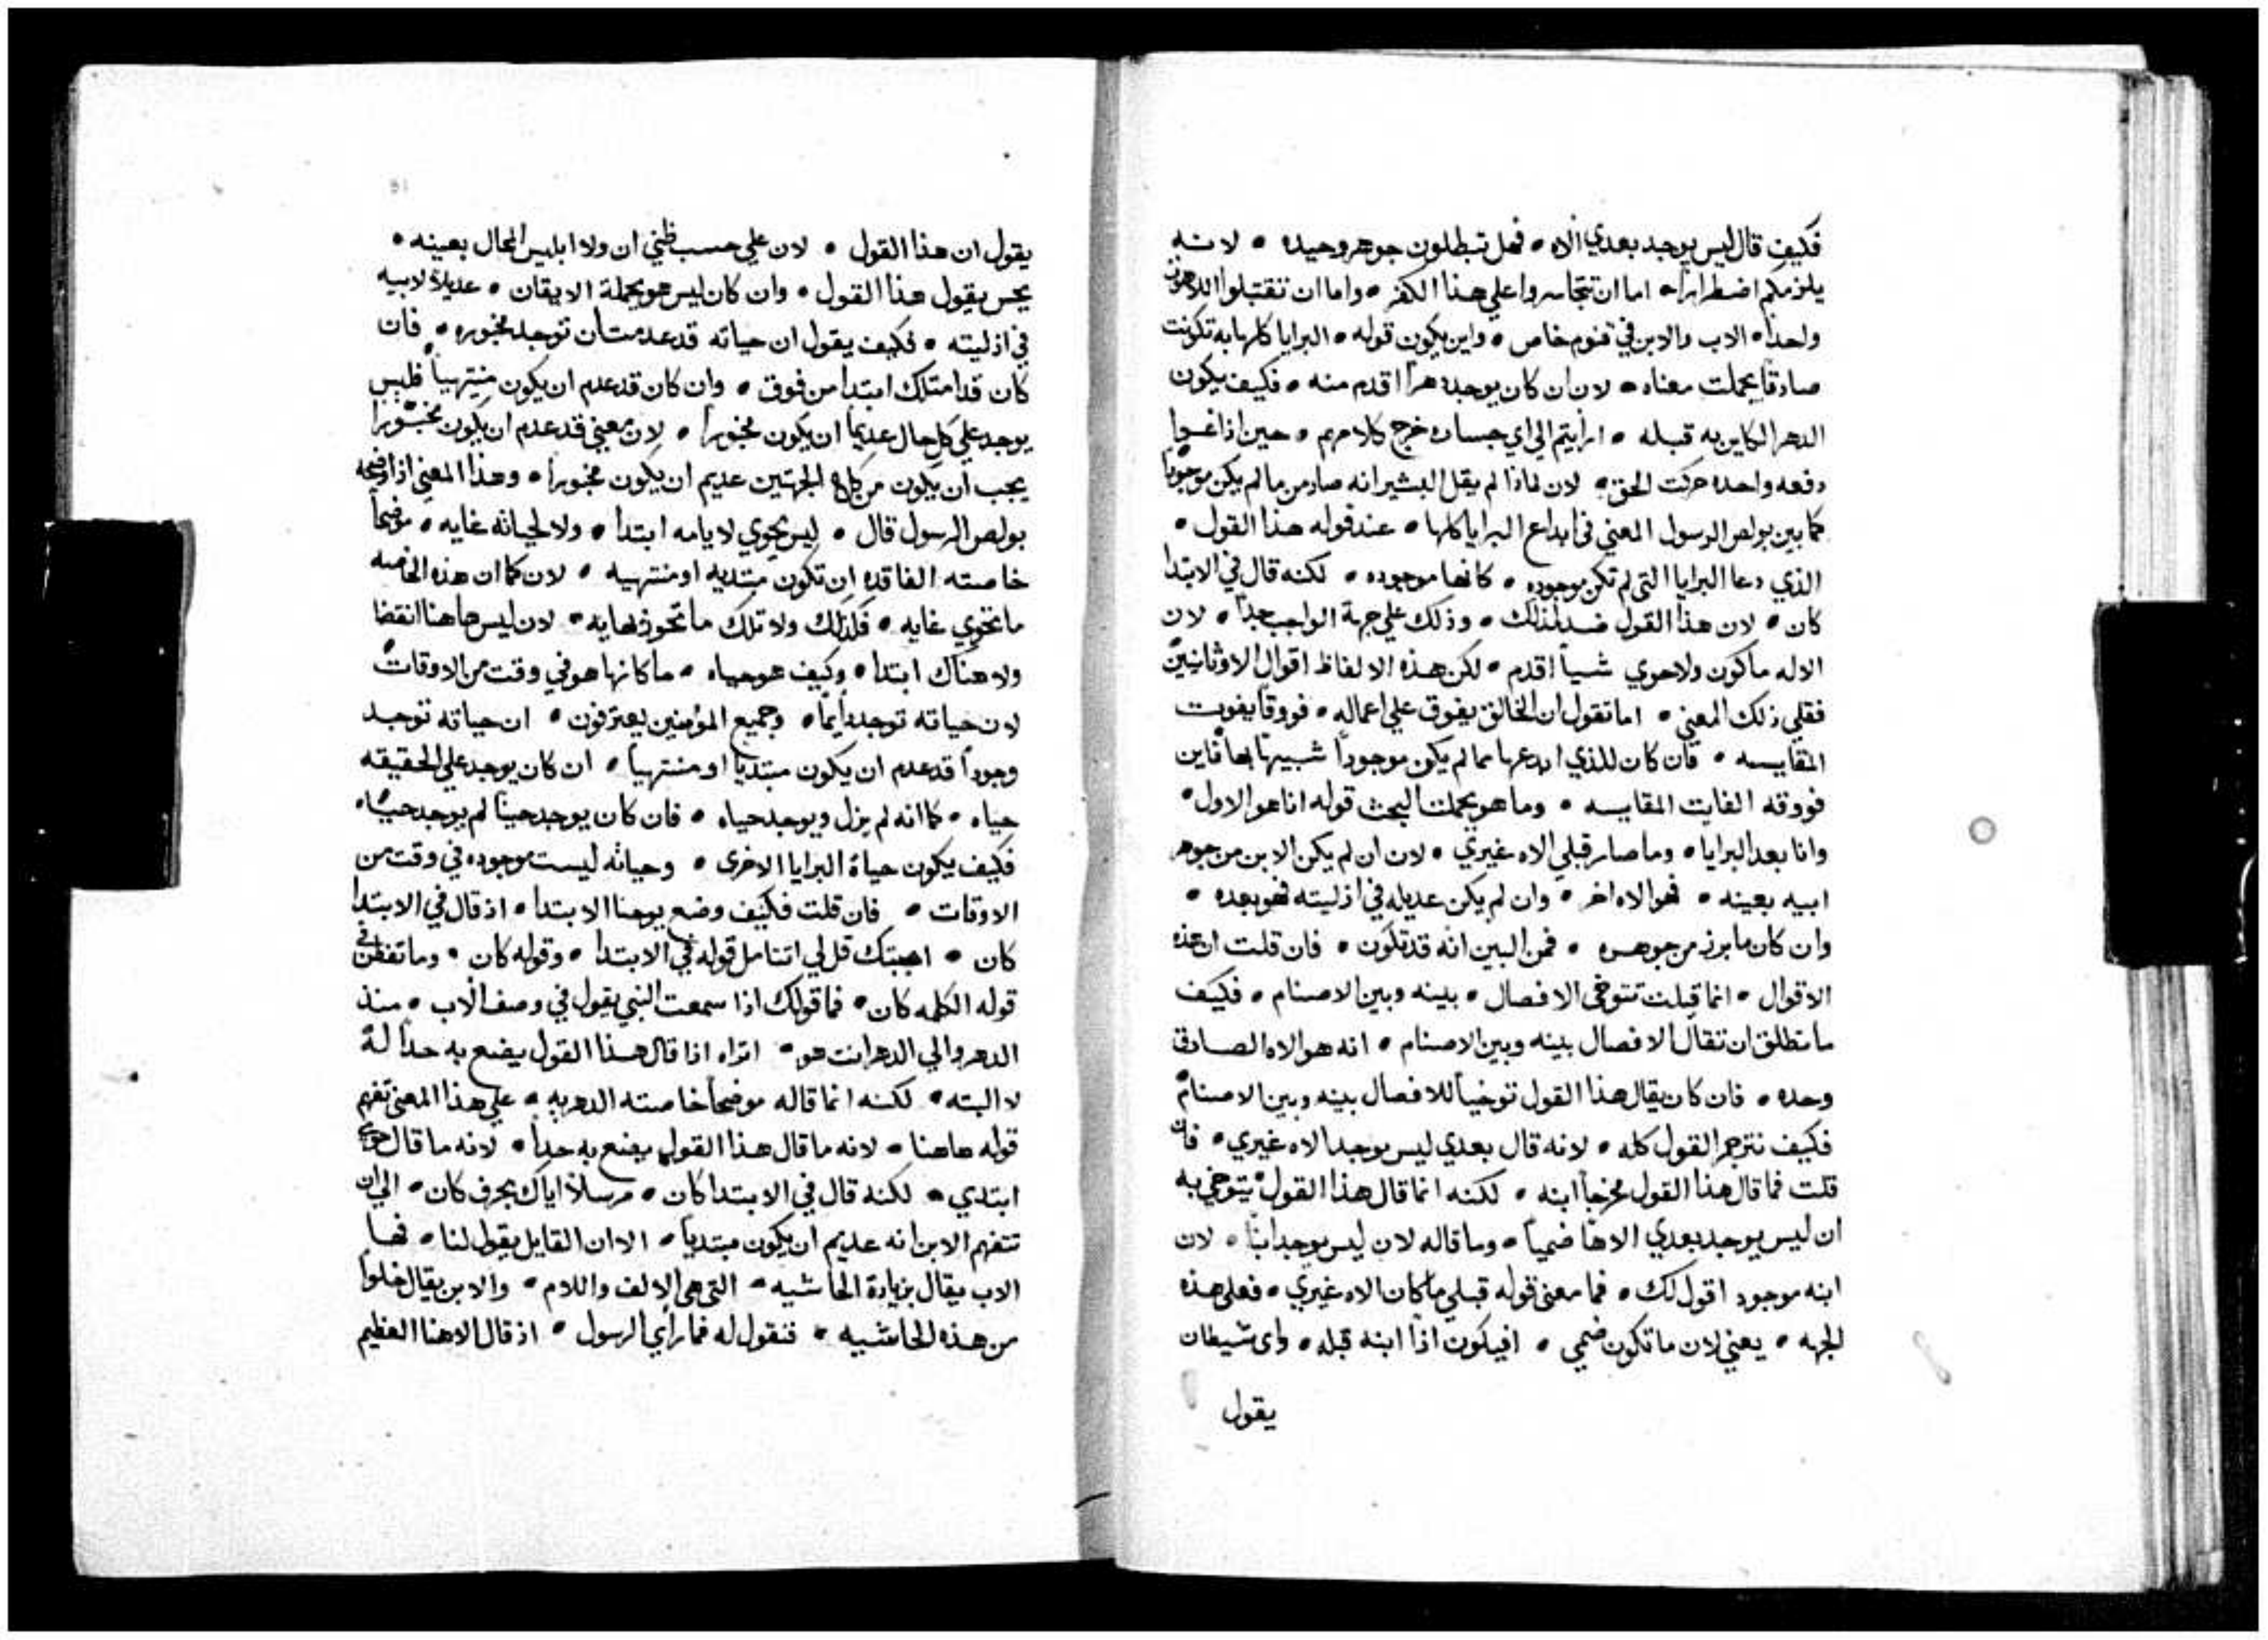 فكيف قال ليس يوجد بعدي الاه • فهل تبطلون جوهر وحيده • لانه
يلزمكم اضطرارا • اما ان تتجاسروا علي هذا الكفر • واما ان تقتبلوا اللاهوت
واحدا • الاب والابن في قنوم خاص • واين يكون قوله • البرايا كلها به تكونت
صادقا بجملت معناه • لان ان كان يوجد دهرا اقدم منه • فكيف يكون
الدهر الكاين به قبله • ارايتم الي اي جساره خرج كلامهم • حين اذا غيروا
دفعه واحده حركت الحق • لان لماذا لم يقل البشير انه صار من ما لم يكن موجودا
كما بين بولص الرسول المعني في ابداع البرايا كلها • عند قوله هذا القول •
الذي دعا البرايا التي لم تكن موجوده • كانها موجوده • لكنه قال في الابتدا
كان • لان هذا القول ضد لذلك • وذلك علي جهة الواجب جدا • لان
الاله ما كون ولا حوي شيا اقدم • لكن هذه الالفاظ اقوال الاوثانيين
فقلي ذلك المعني • اما تقول ان الخالق يفوق علي اعماله • فووقا يفوت
المقايسه • فان كان للذي ابدعها مما لم يكن موجودا شبيها بها فاين
فووقه الفايت المقايسه • وما هو بجملت البحث قوله انا هو الاول •
وانا بعد البرايا • وما صار قبلي الاه غيري • لان ان لم يكن الابن من جوهر
ابيه بعينه • فهو الاه اخر • وان لم يكن عديله في ازليته فهو بعده •
وان كان ما برز من جوهره • فمن البين انه قد تكون • فان قلت ان هذه
الاقوال • انما قيلت تتوخي الافصال • بينه وبين الاصنام • فكيف
ما تطلق ان تقال الافصال بينه وبين الاصنام • انه هو الاه الصادق
وحده • فان كان يقال هذا القول توخيا للافصال بينه وبين الاصنام
فكيف نترجم القول كله • لانه قال بعدي ليس يوجد الاه غيري • فان
قلت فما قال هذا القول مخرجا ابنه • لكنه انما قال هذا القول يتوخي به
ان ليس يوجد بعدي الاها ضميا • وما قاله لان ليس يوجد ابنا • لان
ابنه موجود اقول لك • فما معني قوله قبلي ما كان الاه غيري • فعلي هذه
الجهه • يعني لان ما تكون ضمي • افيكون اذا ابنه قبله • واي شيطان
يقول
يقول ان هذا القول • لان علي حسب ظني ان ولا ابليس المحال بعينه •
يجس يقول هذا القول • وان كان ليس هو بجملة الايقان • عديلا لابيه
في ازليته • فكيف يقول ان حياته قد عدمت ان توجد مخبوره • فان
كان قد امتلك ابتدا من فوق • وان كان قد عدم ان يكون منتهيا فليس
يوجد علي كل حال عديما ان يكون مخبورا • لان معني قد عدم ان يكون مخبورا
يجب ان يكون من كلا الجهتين عديم ان يكون مخبورا • وهذا المعني اذ اوضحه
بولص الرسول قال • ليس يحوي لايامه ابتدا • ولا لحياته غايه • موضحا
خاصته الفاقده ان تكون مبتديه او منتهيه • لان كما ان هذه الخاصه
ما تحوي غايه • فكذلك ولا تلك ما تحوز نهايه • لان ليس هاهنا انقضا
ولا هناك ابتدا • وكيف هو حياه • ما كانها هو في وقت من الاوقات
لان حياته توجد دايما • وجميع المؤمنين يعترفون • ان حياته توجد
وجودا قد عدم ان يكون مبتديا او منتهيا • ان كان يوجد علي الحقيقه
حياه • كما انه لم يزل ويوجد حياه • فان كان يوجد حينا لم يوجد حياه
فكيف يكون حياة البرايا الاخري • وحياته ليست موجوده في وقت من
الاوقات • فان قلت فكيف وضع يوحنا الابتدا • اذ قال في الابتدا
كان • اجبتك قل لي اتتامل قوله في الابتدا • وقوله كان • وما تفطن في
قوله الكلمه كان • فما قولك اذا سمعت النبي يقول في وصف الاب • منذ
الدهر والي الدهر انت هو • اتراه اذا قال هذا القول يضع به حدا له
لا البته • لكنه انما قاله موضحا خاصته الدهريه • علي هذا المعني تفهم
قوله هاهنا • لانه ما قال هذا القول يضع به حدا • لانه ما قال حوي
ابتدي • لكنه قال في الابتدا كان • مرسلا اياك بحرف كان • الي ان
تتفهم الابن انه عديم ان يكون مبتديا • الا ان القايل يقول لنا • فها
الاب يقال بزيادة الحاشيه • التي هي الالف واللام • والابن يقال خلوا
من هذه الحاشيه • فنقول له فما رأي الرسول • اذ قال الاهنا العظيم